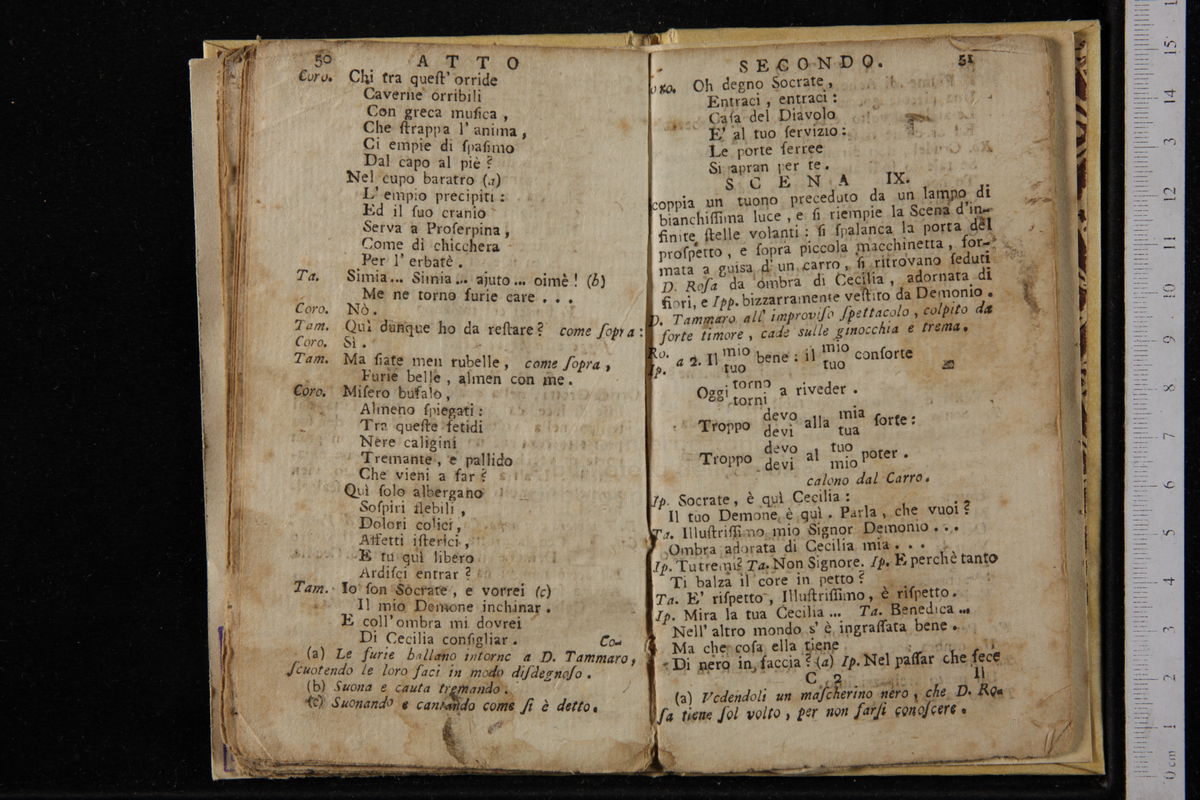 50 ATTO
Coro. Chi tra queſt' orride
Caverne orribili
Con greca muſica,
Che ſtrappa l'anima,
Ci empie di ſpaſimo
Dal capo al piè?
Nel cupo baratro (a)
L'empio precipiti:
Ed il ſuo cranio
Serva a Proſerpina,
Come di chicchera
Per l'erbatè.
Ta. Simia... Simia... ajuto... oimè! (b)
Me ne torno furie care...
Coro. Nò.
Tam. Quì dunque ho da reſtare? come ſopra:
Coro. Sì.
Tam. Ma ſiate men rubelle, come ſopra,
Furie belle, almen con me.
Coro. Miſero bufalo,
Almeno ſpiegati:
Tra queſte fetidi
Nere caligini
Tremante, e pallido
Che vieni a far?
Quì ſolo albergano
Soſpiri flebili,
Dolori colici,
Affetti iſterici,
E tu quì libero
Ardiſci entrar?
Tam. Io ſon Socrate, e vorrei (c)
Il mio Demone inchinar.
E coll'ombra mi dovrei
Di Cecilia conſigliar. Co-
(a) Le furie ballano intorno a D. Tammaro,
ſcuotendo le loro faci in modo diſdegnoſo.
(b) Suona e canta tremando.
(c) Suonando e cantando come ſi è detto.
SECONDO. 51
oro. Oh degno Socrate,
Entraci, entraci:
Caſa del Diavolo
E' al tuo ſervizio:
Le porte ferree
Si apran per te.
SCENA IX.
coppia un tuono preceduto da un lampo di
bianchiſſima luce, e ſi riempie la Scena d'in-
finite ſtelle volanti: ſi ſpalanca la porta del
proſpetto, e ſopra piccola macchinetta, for-
mata a guisa d'un carro, ſi ritrovano ſeduti
D. Roſa da ombra di Cecilia, adornata di
fiori, e Ipp. bizzarramente veſtito da Demonio.
D. Tammaro all' improviſo ſpettacolo, colpito da
forte timore, cade sulle ginocchia e trema.
Ro. mio mio
a 2. Il bene: il conſorte
Ip. tuo tuo
torno
Oggi a riveder.
torni
devo mia
Troppo alla ſorte:
devi tua
devo tuo
Troppo al poter.
devi mio
calono dal Carro.
Ip. Socrate, è quì Cecilia:
Il tuo Demone è quì. Parla, che vuoi?
Ta. Illuſtriſſimo mio Signor Demonio...
Ombra adorata di Cecilia mia...
Ip. Tu tremi? Ta. Non Signore. Ip. E perchè tanto
Ti balza il core in petto?
Ta. E' riſpetto, Illuſtriſſimo, è riſpetto.
Ip. Mira la tua Cecilia... Ta. Benedica...
Nell'altro mondo s'è ingraſſata bene.
Ma che coſa ella tiene
Di nero in faccia? (a) Ip. Nel paſſar che fece
C 2 Il
(a) Vedendoli un maſcherino nero, che D. Ro-
ſa tiene ſol volto, per non farſi conoſcere.